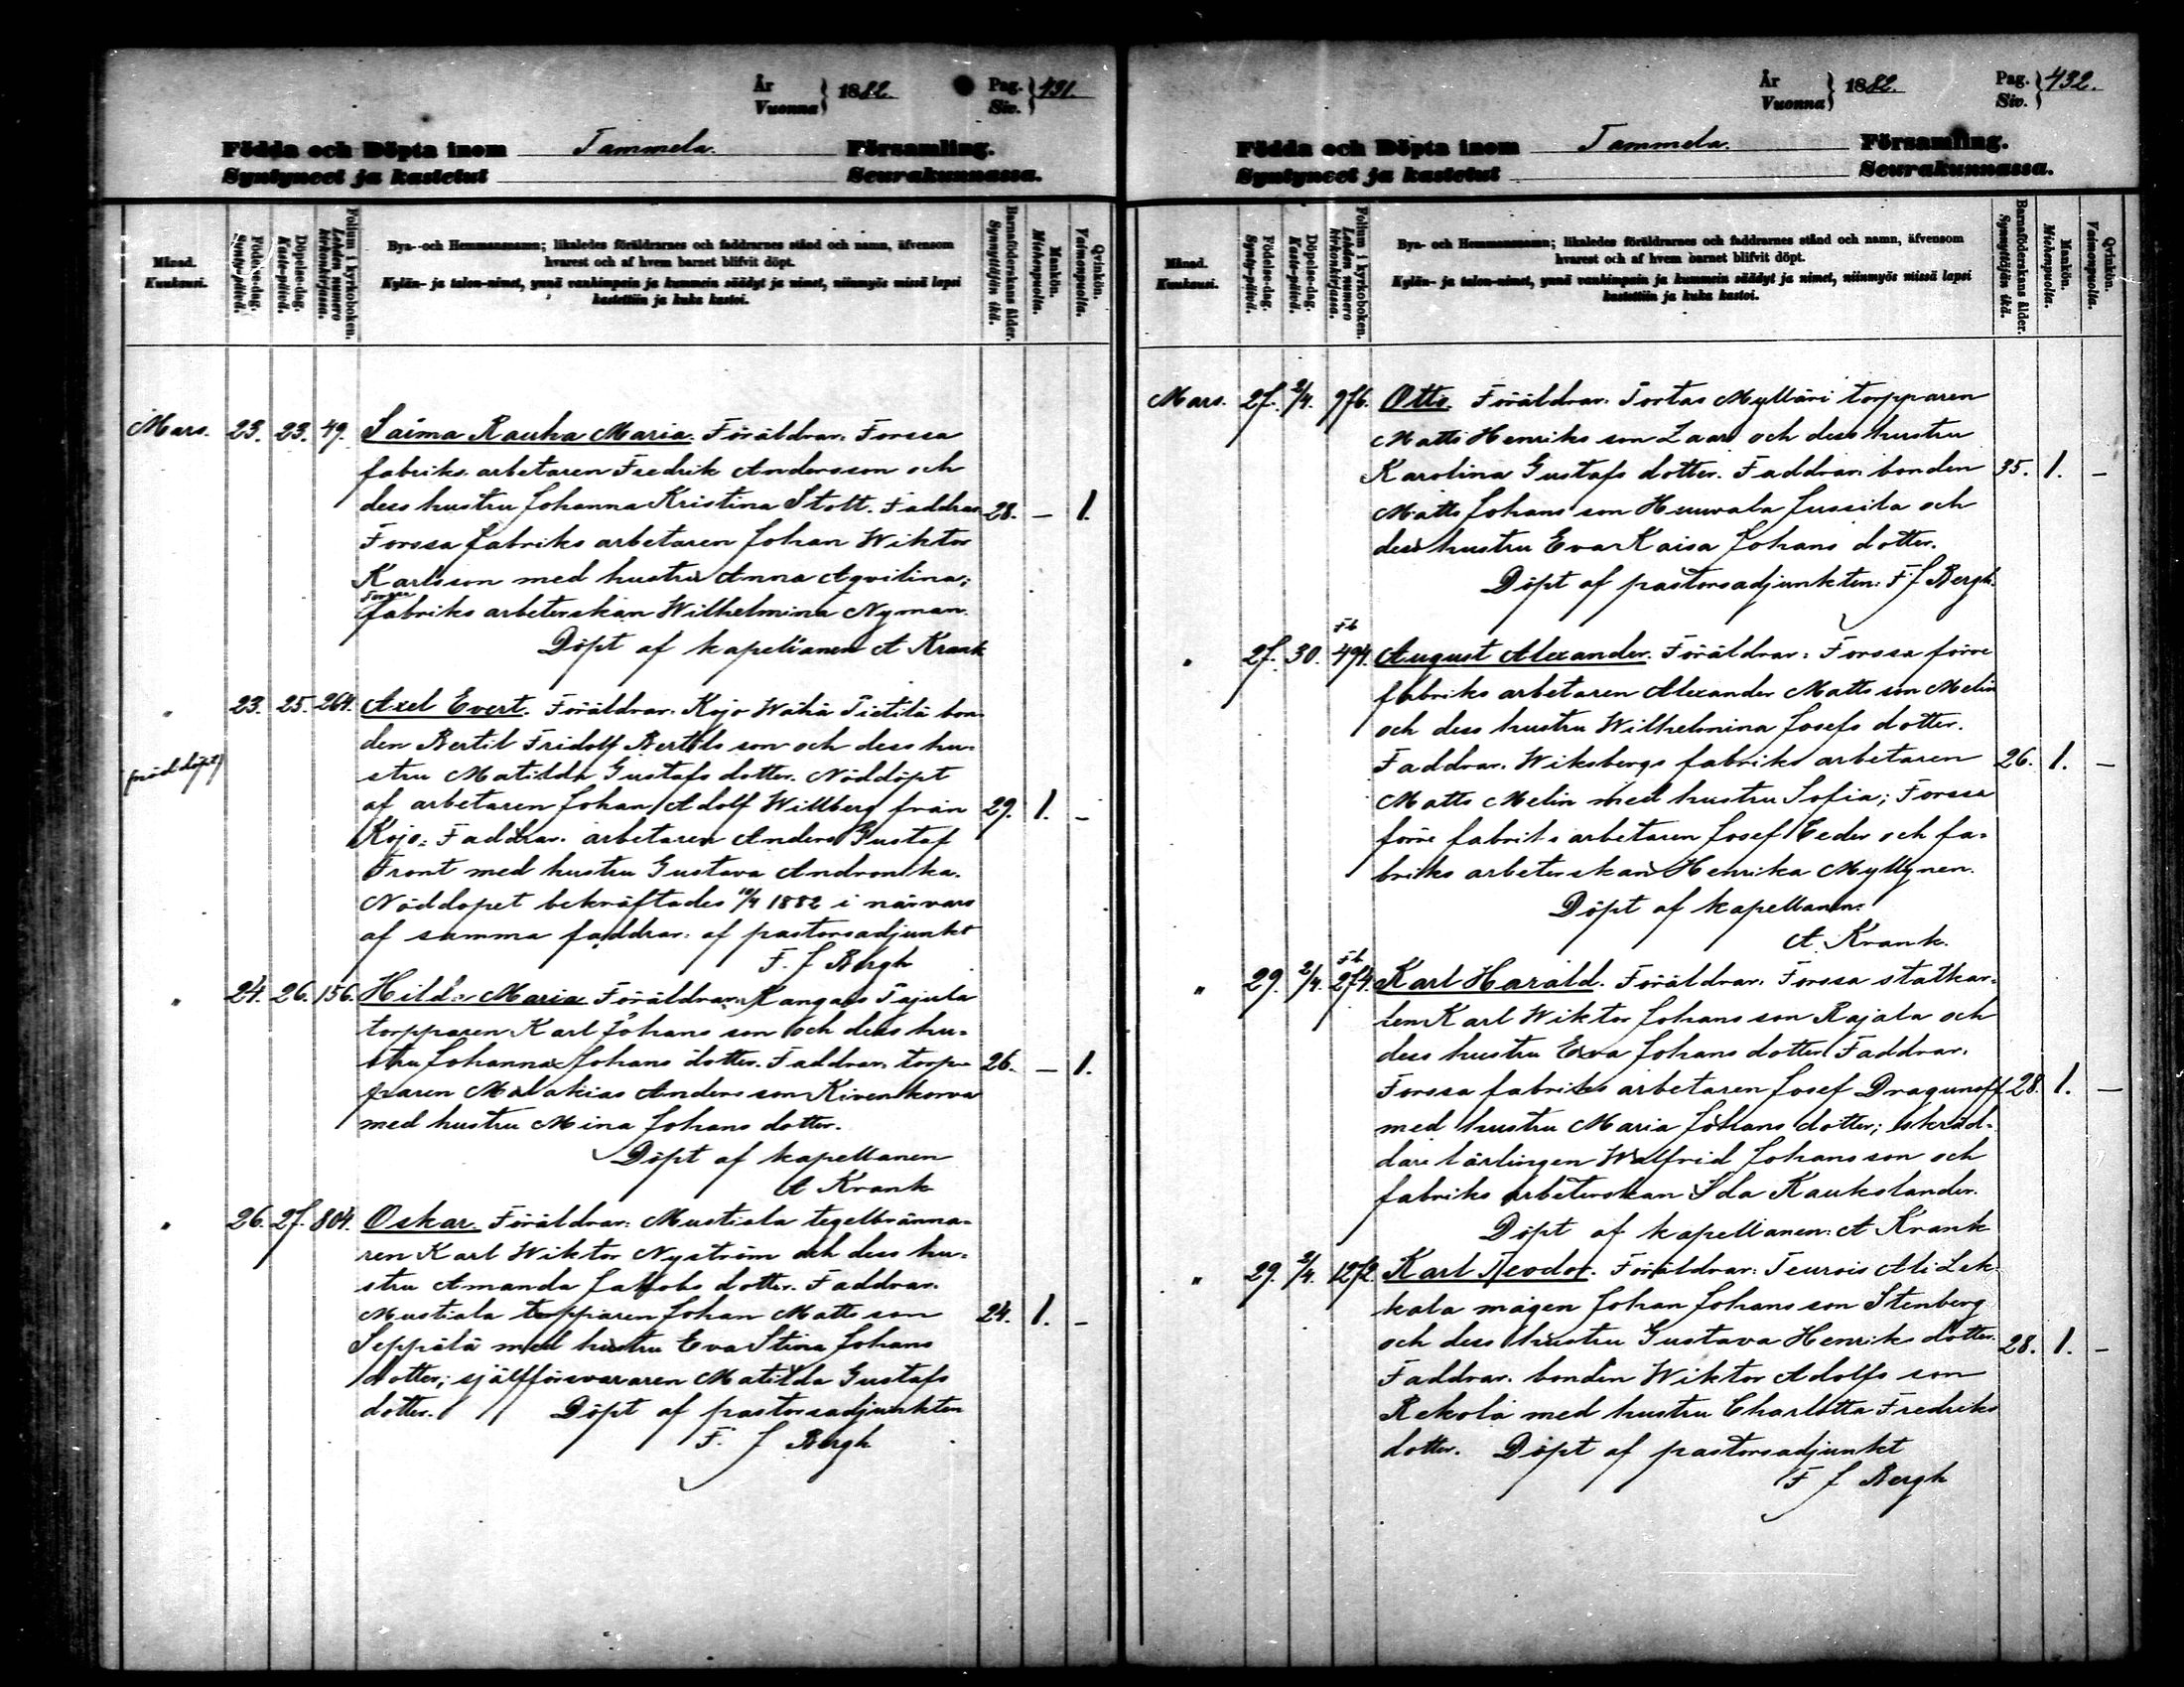 År
Vuonna } 1882. Pag.
Siv. } 431.
Födda och Döpta inom Tammela. Församling.
Syntyneet ja kastetut Seurakunnassa.
Månad.
Kuukausi.
Födelse-dag.
Synty-päivä.
Döpelse-dag.
Kaste-päivä.
Folium i kyrkoboken.
Lehden numero kirkonkirjassa.
Bya- och Hemmansnamn; likaledes föräldrarnes och faddrarnes stånd och namn, äfvensom
hvarest och af hvem barnet blifvit döpt.
Kylän- ja talon-nimet, ynnä vanhimpain ja kummein säädyt ja nimet, niinmyös missä lapsi
kastettiin ja kuka kastoi.
Barnaföderskans ålder.
Synnyttäjän ikä.
Mankön.
Miehenpuolta.
Qvinkön.
Vaimonpuolta.
Mars. 23. 23. 49. Saima Rauha Maria. Föräldrar: Forssa
fabriks arbetaren Fredrik Andersson och
dess hustru Johanna Kristina Stolt. Faddrar 28. – 1.
Forssa fabriks arbetaren Johan Wiktor
Karlsson med hustru Anna Aqvilina;
Forssa
fabriks arbeterskan Wilhelmina Nyman.
Döpt af kapellanen A Krank
" 23. 25. 264. Axel Evert. Föräldrar: Kojo Wähä Pietilä bon-
den Bertil Fridolf Bertils son och dess hu-
(nöddöpt) stru Matilda Gustafs dotter. Nöddöpt
af arbetaren Johan Adolf Willberg från 29. 1. –
Kojo. Faddrar: arbetaren Anders Gustaf
Front med hustru Gustava Andronika.
Nöddopet bekräftades 10/4 1882 i närvaro
af samma faddrar: af pastorsadjunkt
F. J Bergh
" 24. 26. 156. Hilda Maria Föräldrar: Kangais Tajula
torpparen Karl Johans son och dess hu-
stru Johanna Johans dotter. Faddrar: torp- 26. – 1.
paren Malakias Anders son Kivenkorva
med hustru Mina Johans dotter.
Döpt af kapellanen
A Krank
" 26. 27. 804. Oskar. Föräldrar: Mustiala tegelbränna-
ren Karl Wiktor Nyström och dess hu-
stru Amanda Jakobs dotter. Faddrar:
Mustiala torpparen Johan Matts son 24. 1. –
Seppälä med hustru Eva Stina Johans
dotter; sjelfförsvararen Matilda Gustafs
dotter. Döpt af pastorsadjunkten
F. J Bergh
År
Vuonna } 1882. Pag.
Siv. } 432.
Födda och Döpta inom Tammela. Församling.
Syntyneet ja kastetut Seurakunnassa.
Månad.
Kuukausi.
Födelse-dag.
Synty-päivä.
Döpelse-dag.
Kaste-päivä.
Folium i kyrkoboken.
Lehden numero kirkonkirjassa.
Bya- och Hemmansnamn; likaledes föräldrarnes och faddrarnes stånd och namn, äfvensom
hvarest och af hvem barnet blifvit döpt.
Kylän- ja talon-nimet, ynnä vanhimpain ja kummein säädyt ja nimet, niinmyös missä lapsi
kastettiin ja kuka kastoi.
Barnaföderskans ålder.
Synnyttäjän ikä.
Mankön.
Miehenpuolta.
Qvinkön.
Vaimonpuolta.
Mars. 27. 2/4. 976. Otto. Föräldrar: Tortas Mylläri torpparen
Matts Henriks son Laari och dess hustru
Karolina Gustafs dotter. Faddrar: bonden 35. 1. –
Matts Johans son Hunvala Jussila och
dess hustru Eva Kaisa Johans dotter.
Döpt af pastorsadjunkten: F J Bergh.
Fb
" 27. 30. 494. August Alexander. Föräldrar: Forssa förre
fabriks arbetaren Alexander Matts son Melin
och dess hustru Wilhelmina Josefs dotter.
Faddrar: Wiksbergs fabriks arbetaren 26. 1. –
Matts Melin med hustru Sofia; Forssa
förre fabriks arbetaren Josef Ceder och fa-
briks arbeterskan Henrika Myllynen.
Döpt af kapellanen:
A. Krank.
Fb
" 29. 2/4. 274. Karl Harald. Föräldrar: Forssa statkar-
len Karl Wiktor Johans son Rajala och
dess hustru Eva Johans dotter. Faddrar:
Forssa fabriks arbetaren Josef Dragunoff 28. 1. –
med hustru Maria Johans dotter; skräd-
dare lärlingen Walfrid Johansson och
fabriks arbeterskan Ida Kaukolander.
Döpt af kapellanen: A Krank
" 29. 2/4. 1272. Karl Teodor. Föräldrar: Teurois Ali Lek-
kala mågen Johan Johans son Stenberg
och dess hustru Gustava Henriks dotter. 28. 1. –
Faddrar: bonden Wiktor Adolfs son
Rekola med hustru Charlotta Fredriks
dotter. Döpt af pastorsadjunkt
F J Bergh